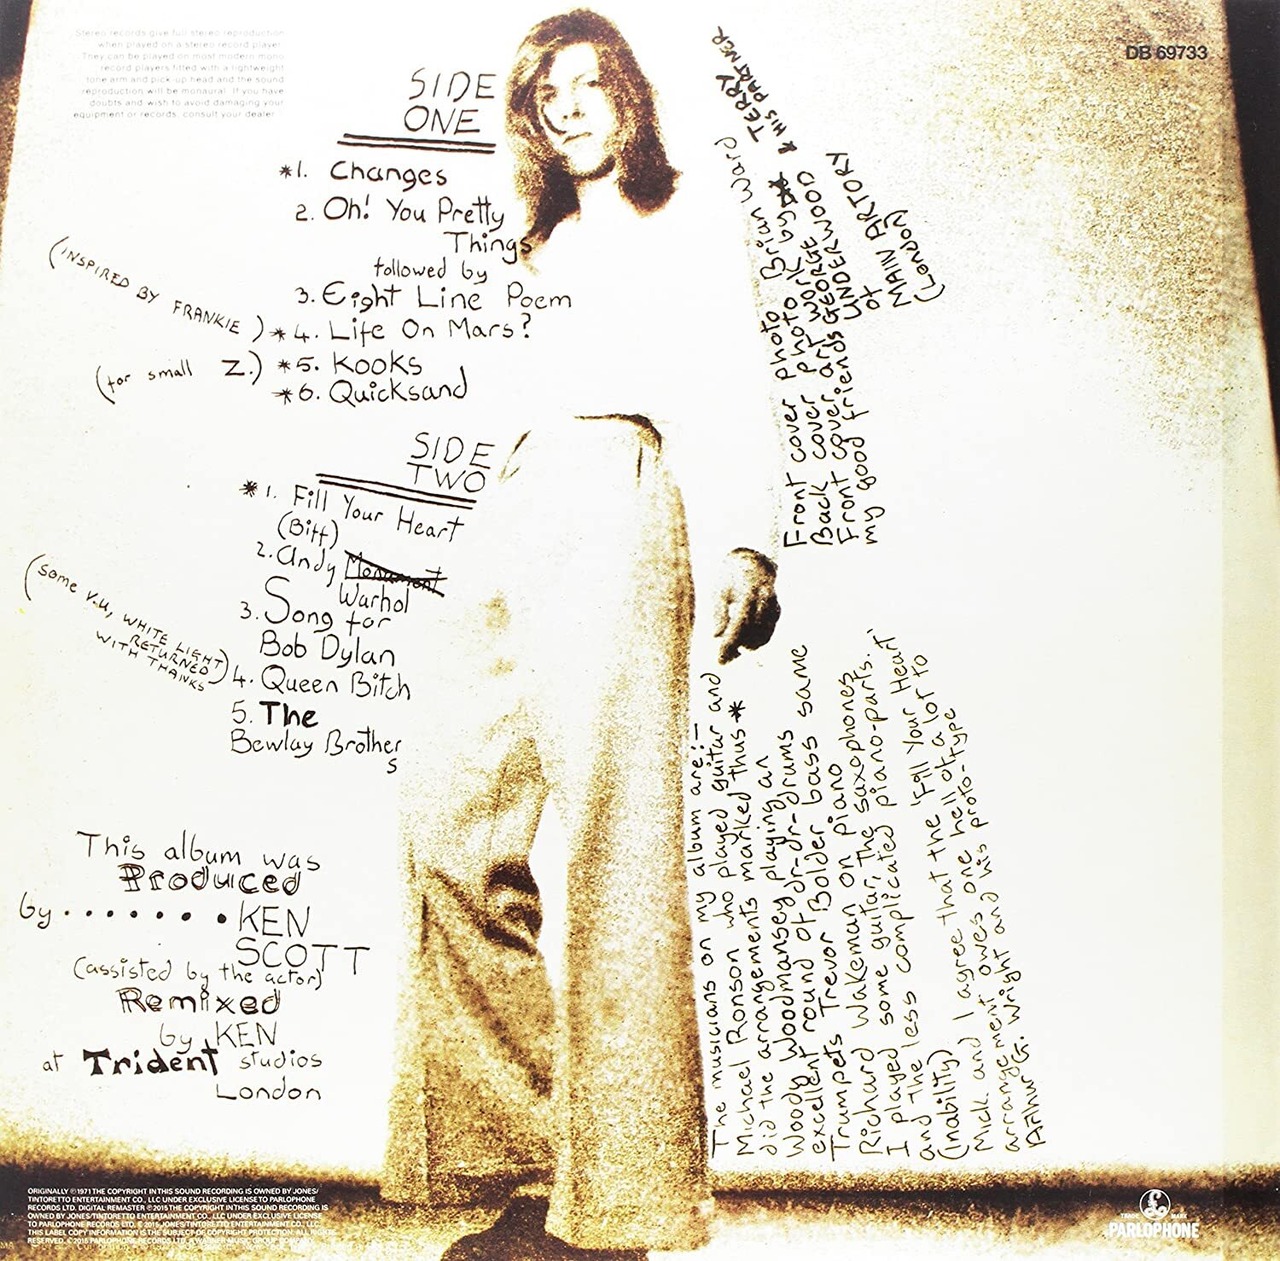 Stereo records give full stereo reproduction
when played on a stereo record player.
They can be played on most modern mono
record players fitted with a lightweight
tone arm and pick-up head and the sound
reproduction will be monaural. If you have
doubts and wish to avoid damaging your
equipment or records, consult your dealer.
DB 69733
SIDE
ONE
*1. Changes
2. Oh! You Pretty
Things
followed by
3. Eight Line Poem
(INSPIRED BY FRANKIE) *4. Life On Mars?
(for small Z.) *5. Kooks
*6. Quicksand
SIDE
TWO
*1. Fill Your Heart
(Biff)
2. Andy Monument
Warhol
3. Song for
Bob Dylan
(some V.U, WHITE LIGHT
RETURNED
WITH THANKS)
4. Queen Bitch
5. The
Bewlay Brother
s
This album was
Produced
by ....... KEN
SCOTT
(assisted by the actor)
Remixed
by KEN
at Trident studios
London
Front cover photo Brian Ward
Back cover photo by TERRY
& HIS PARTNER
Front cover art work
my good friends GEORGE UNDERWOOD
of
MAIN ARTORY
(London)
The musicians on my album are:-
Michael Ronson who played guitar and
did the arrangements marked thus *
Woody Woodmansey playing an
excellent round of dr-dr-drums same
Trumpets Trevor Bolder bass
Richard Wakeman on piano
I played some guitar, the saxophones
and the less complicated piano-parts.
(inability)
Mick and I agree that the 'Fill Your Heart'
arrangement owes one hell of a lor to
Arthur G. Wright and his proto-type
ORIGINALLY ℗1971 THE COPYRIGHT IN THIS SOUND RECORDING IS OWNED BY JONES/
TINTORETTO ENTERTAINMENT CO., LLC UNDER EXCLUSIVE LICENSE TO PARLOPHONE
RECORDS LTD. DIGITAL REMASTER ℗2015 THE COPYRIGHT IN THIS SOUND RECORDING IS
OWNED BY JONES/TINTORETTO ENTERTAINMENT CO., LLC UNDER EXCLUSIVE LICENSE
TO PARLOPHONE RECORDS LTD. ©2015 JONES/TINTORETTO ENTERTAINMENT CO., LLC.
THIS LABEL COPY INFORMATION IS THE SUBJECT OF COPYRIGHT PROTECTION. ALL RIGHTS
RESERVED. ©2015 PARLOPHONE RECORDS LTD, A WARNER MUSIC GROUP COMPANY
TRADE MARK
PARLOPHONE